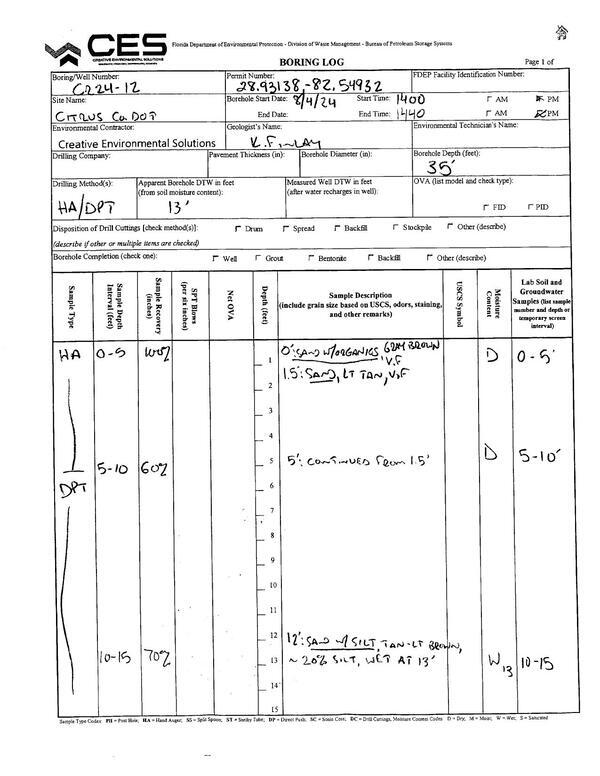 CES
CREATIVE ENVIRONMENTAL SOLUTIONS
Florida Department of Environmental Protection - Division of Waste Management - Bureau of Petroleum Storage Systems
BORING LOG
Page 1 of
Boring/Well Number: CR24-12
Permit Number: 28.93138,-82.54932
FDEP Facility Identification Number:
Site Name: CITRUS Co. DOT
Borehole Start Date: 8/4/24 Start Time: 1400 AM PM
End Date: End Time: 1440 AM PM
Environmental Contractor: Creative Environmental Solutions
Geologist's Name: K.FINLAY
Environmental Technician's Name:
Drilling Company:
Pavement Thickness (in):
Borehole Diameter (in):
Borehole Depth (feet): 35'
Drilling Method(s): HA/DPT
Apparent Borehole DTW in feet (from soil moisture content): 13'
Measured Well DTW in feet (after water recharges in well):
OVA (list model and check type):
FID PID
Disposition of Drill Cuttings [check method(s)]: Drum Spread Backfill Stockpile Other (describe)
(describe if other or multiple items are checked)
Borehole Completion (check one): Well Grout Bentonite Backfill Other (describe)
Sample Type
Sample Depth Interval (feet)
Sample Recovery (inches)
SPT Blows (per six inches)
Net OVA
Depth (feet)
Sample Description (include grain size based on USCS, odors, staining, and other remarks)
USCS Symbol
Moisture Content
Lab Soil and Groundwater Samples (list sample number and depth or temporary screen interval)
HA 0-5 100% 0': SAND W/ORGANICS, GRAY BROWN V.F D 0-5'
1
1.5': SAND, LT TAN, V.F
2
3
4
5-10 60% 5 5': CONTINUED FROM 1.5' D 5-10'
DPT 6
7
8
9
10
11
12 12': SAND W/ SILT, TAN-LT BROWN,
10-15 70% 13 ~20% SILT, WET AT 13' W 13 10-15
14
15
Sample Type Codes: PH = Post Hole; HA = Hand Auger; SS = Split Spoon; ST = Shelby Tube; DP = Direct Push; SC = Sonic Core; DC = Drill Cuttings; Moisture Content Codes: D = Dry; M = Moist; W = Wet; S = Saturated